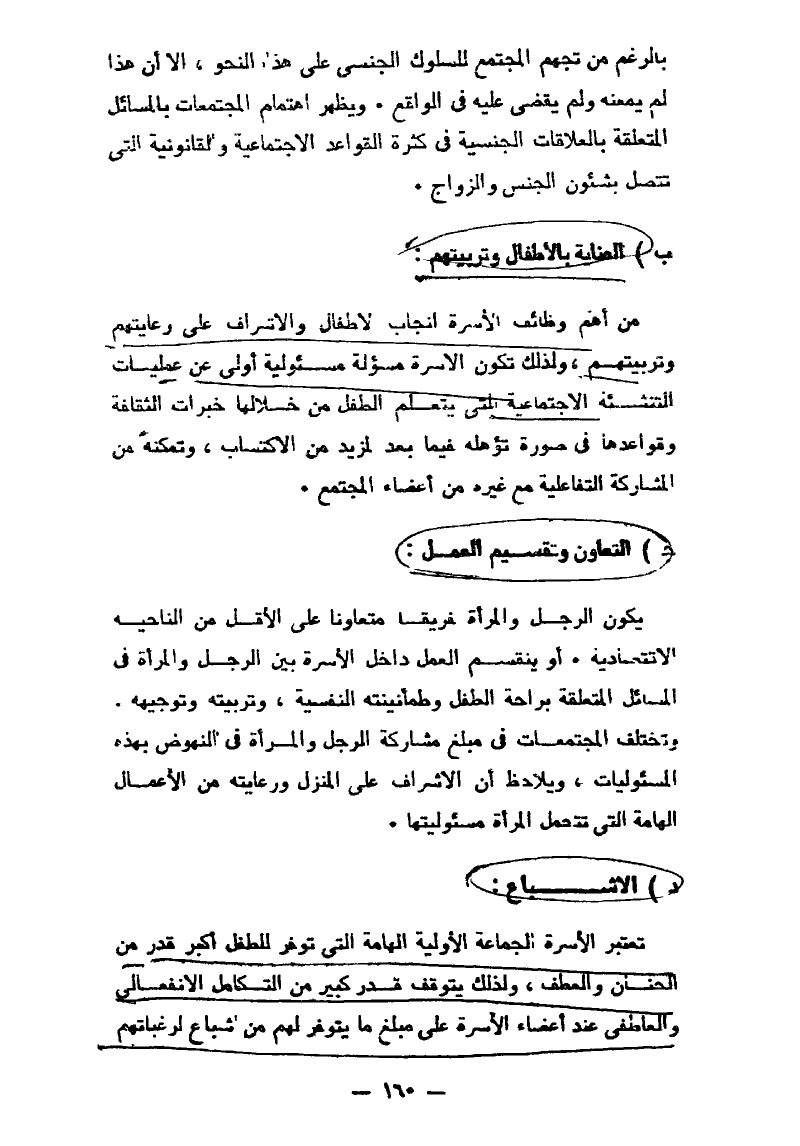 بالرغم من تجهم المجتمع للسلوك الجنسى على هذا النحو ، الا أن هذا
لم يمعنه ولم يقضى عليه فى الواقع . ويظهر اهتمام المجتمعات بالمسائل
المتعلقة بالعلاقات الجنسية فى كثرة القواعد الاجتماعية والقانونية التى
تتصل بشئون الجنس والزواج .
ب ) العناية بالأطفال وتربيتهم :
من أهم وظائف الأسرة انجاب لاطفال والاشراف على رعايتهم
وتربيتهم ، ولذلك تكون الاسرة مسؤلة مسئولية أولى عن عمليات
التنشئة الاجتماعية التى يتعلم الطفل من خلالها خبرات الثقافة
وقواعدها فى صورة تؤهله فيما بعد لمزيد من الاكتساب ، وتمكنه من
المشاركة التفاعلية مع غيره من أعضاء المجتمع .
ج ) التعاون وتقسيم العمل :
يكون الرجل والمرأة فريقا متعاونا على الأقل من الناحيه
الاقتصادية . أو ينقسم العمل داخل الأسرة بين الرجل والمرأة فى
المسائل المتعلقة براحة الطفل وطمأنينته النفسية ، وتربيته وتوجيهه .
وتختلف المجتمعات فى مبلغ مشاركة الرجل والمرأة فى النهوض بهذه
المسئوليات ، ويلاحظ أن الاشراف على المنزل ورعايته من الأعمال
الهامة التى تتحمل المرأة مسئوليتها .
د ) الاشباع :
تعتبر الأسرة الجماعة الأولية الهامة التى توفر للطفل أكبر قدر من
الحنان والعطف ، ولذلك يتوقف قدر كبير من التكامل الانفعالى
والعاطفى عند أعضاء الأسرة على مبلغ ما يتوفر لهم من اشباع لرغباتهم
— ١٦٠ —